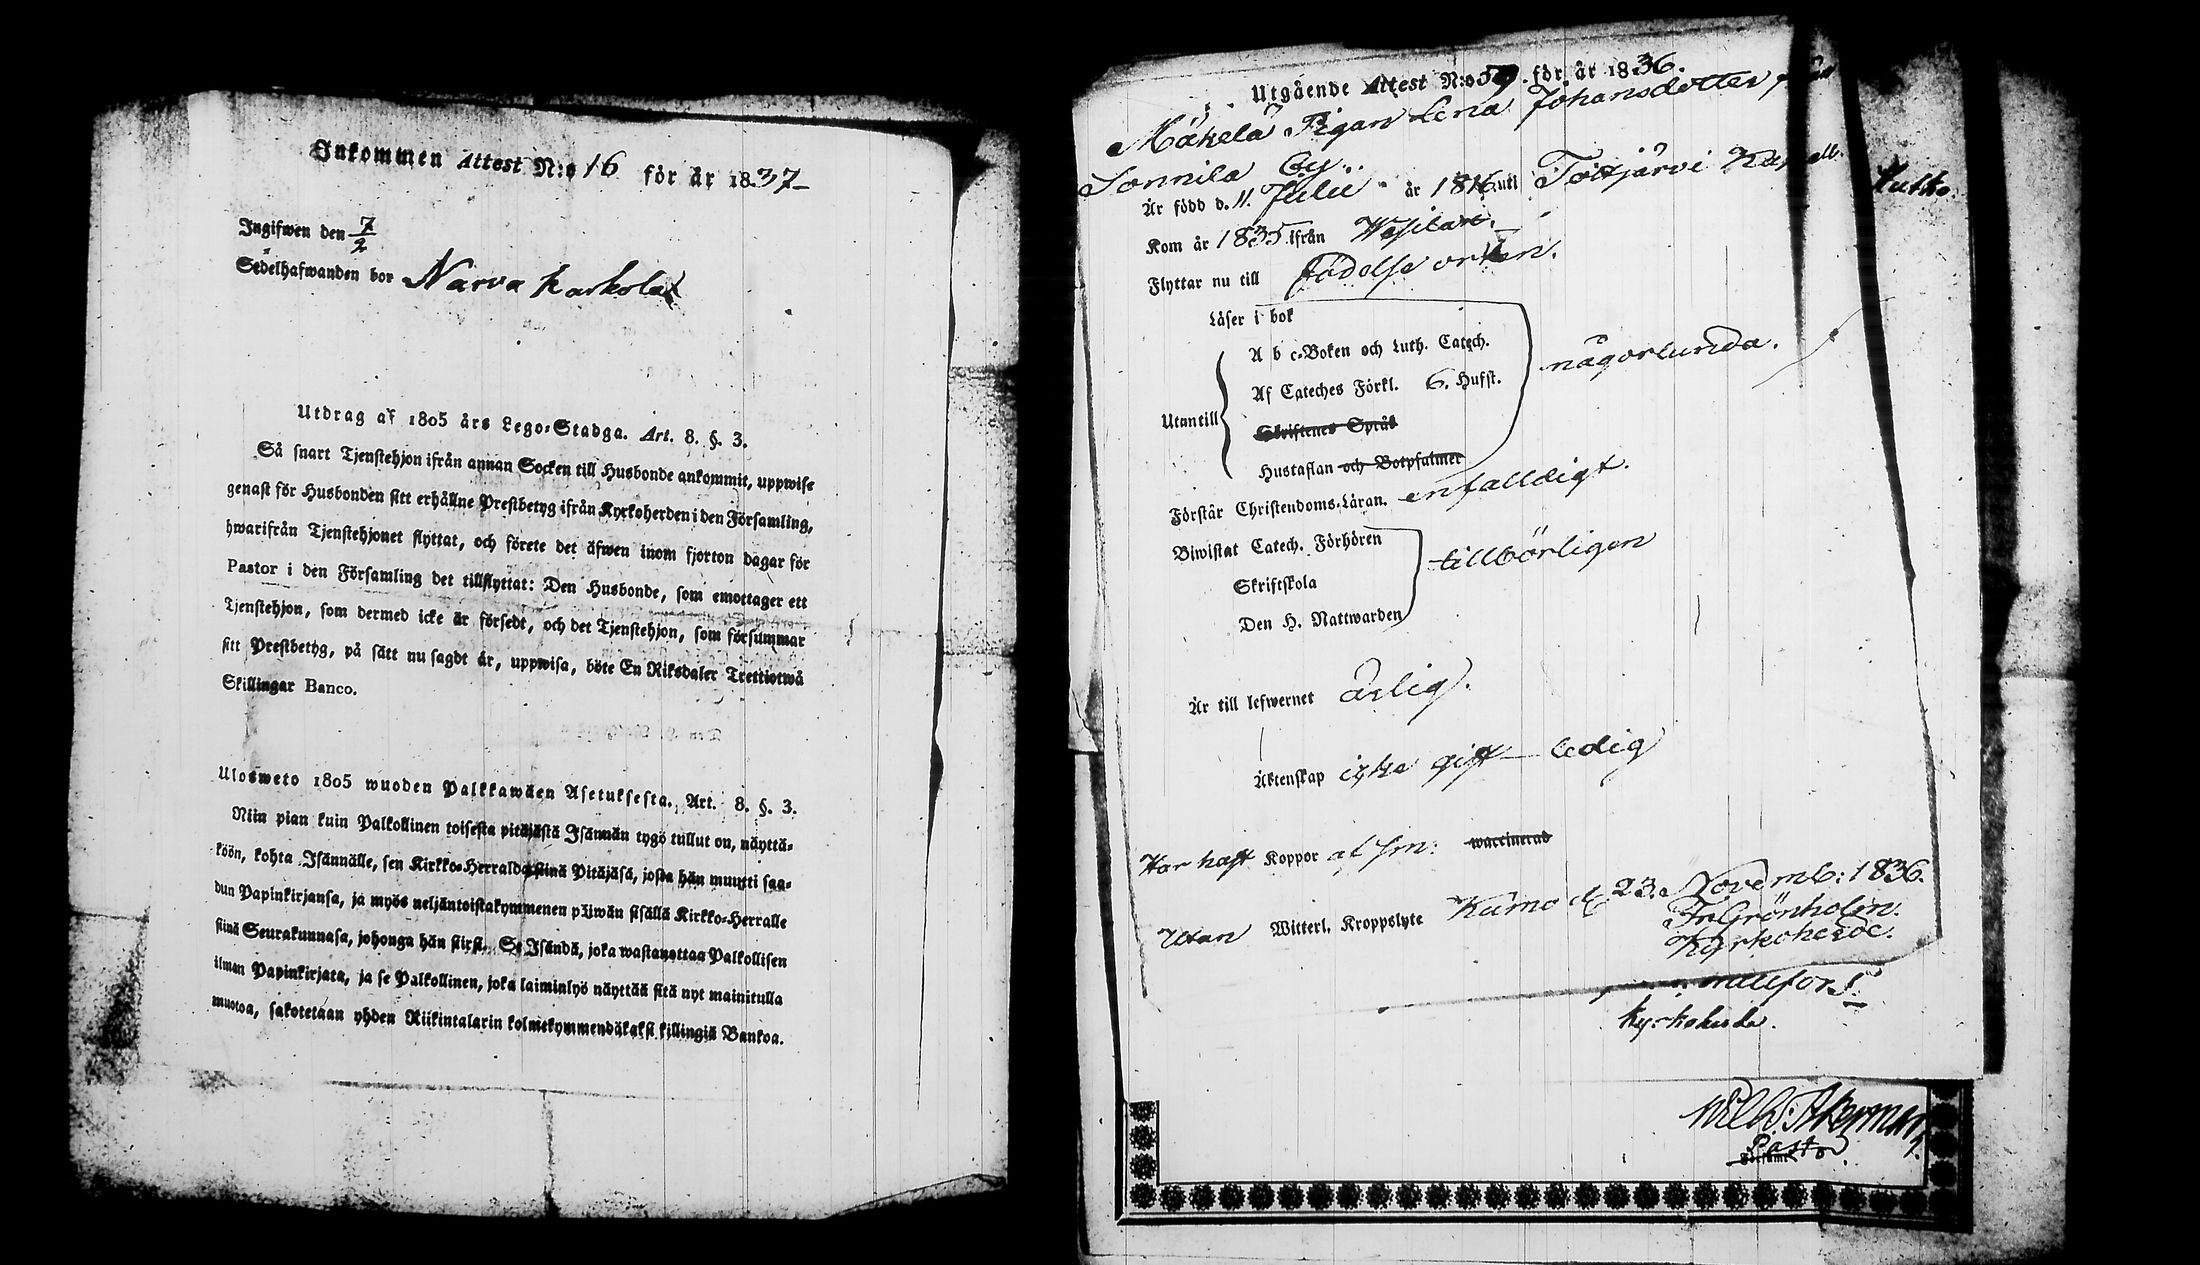 Inkommen Attest N:o 16 för år 1837
Ingifwen den 7/2
Sedelhafwanden bor Narva Karkola
Utdrag af 1805 års Lego-Stadga. Art. 8. §. 3.
Så snart Tjenstehjon ifrån annan Socken till Husbonde ankommit, uppwise
genast för Husbonden sitt erhållne Prestbetyg ifrån Kyrkoherden i den Församling,
hwarifrån Tjenstehjonet flyttat, och förete det äfwen inom fjorton dagar för
Pastor i den Församling det tillflyttat: Den Husbonde, som emottager ett
Tjenstehjon, som dermed icke är försedt, och det Tjenstehjon, som försummar
sitt Prestbetyg, på sätt nu sagdt är, uppwisa, böte En Riksdaler Trettiotwå
Skillingar Banco.
Ulosweto 1805 wuoden Palkkawäen Asetuksesta. Art. 8. §. 3.
Niin pian kuin Palkollinen toisesta pitäjästä Isännän tygö tullut on, näyttä-
köön, kohta Isännälle, sen Kirkko-Herralda siinä Pitäjäsä, josta hän muutti saa-
dun Papinkirjansa, ja myös neljäntoistakymmenen päiwän sisällä Kirkko-Herralle
siinä Seurakunnasa, johonga hän siirsi. Se Isändä, joka wastanottaa Palkollisen
ilman Papinkirjata, ja se Palkollinen, joka laiminlyö näyttää sitä nyt mainitulla
muotoa, sakotetaan yhden Riikintalarin kolmekymmendäkaksi killingiä Bankoa.
Utgående Attest N:o 59 för år 1836.
Mäkelä Pigan Lena Johansdotter från
Sonnila By.
Är född d. 11. Julii år 1816 uti Tottjärvi Kapell.
Kom år 1835 ifrån
Flyttar nu till födelse orten.
Läser i bok
Utantill
A b c-Boken och Luth. Catech.
Af Cateches Förkl. 6. Hufst.
någorlunda.
Skriftenes Språk
Hustaflan och Botpsalmer
Förstår Christendoms-Läran. enfalldigt.
Biwistat Catech. Förhören
Skriftskola
Den H. Nattwarden
tillbörligen
Är till lefwernet ärlig.
Äktenskap icke gift – ledig
Har haft Koppor waccinerad
Utan Witterl. Kroppslyte
Kumo d. 23. Novemb: 1836.
Fr. Grönholm.
Kyrkoherde.
Kyrkoherde.
Wilh: Åkerman
Pastor